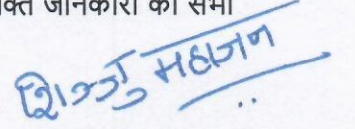 क्त जानकारी की सभी
महाजन